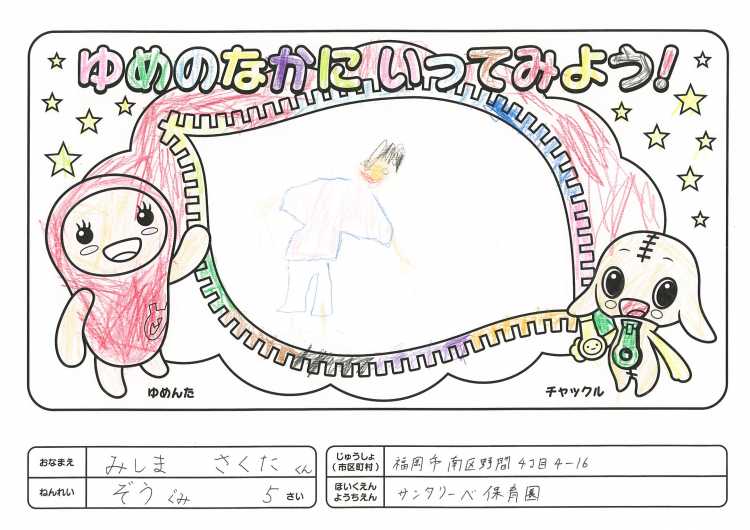 ゆめのなかに いってみよう!
ゆめんた
チャックル
おなまえ みしま さくた くん
ねんれい ぞう ぐみ 5 さい
じゅうしょ
(市区町村) 福岡市南区野間4丁目4-16
ほいくえん
ようちえん サンタリーベ保育園